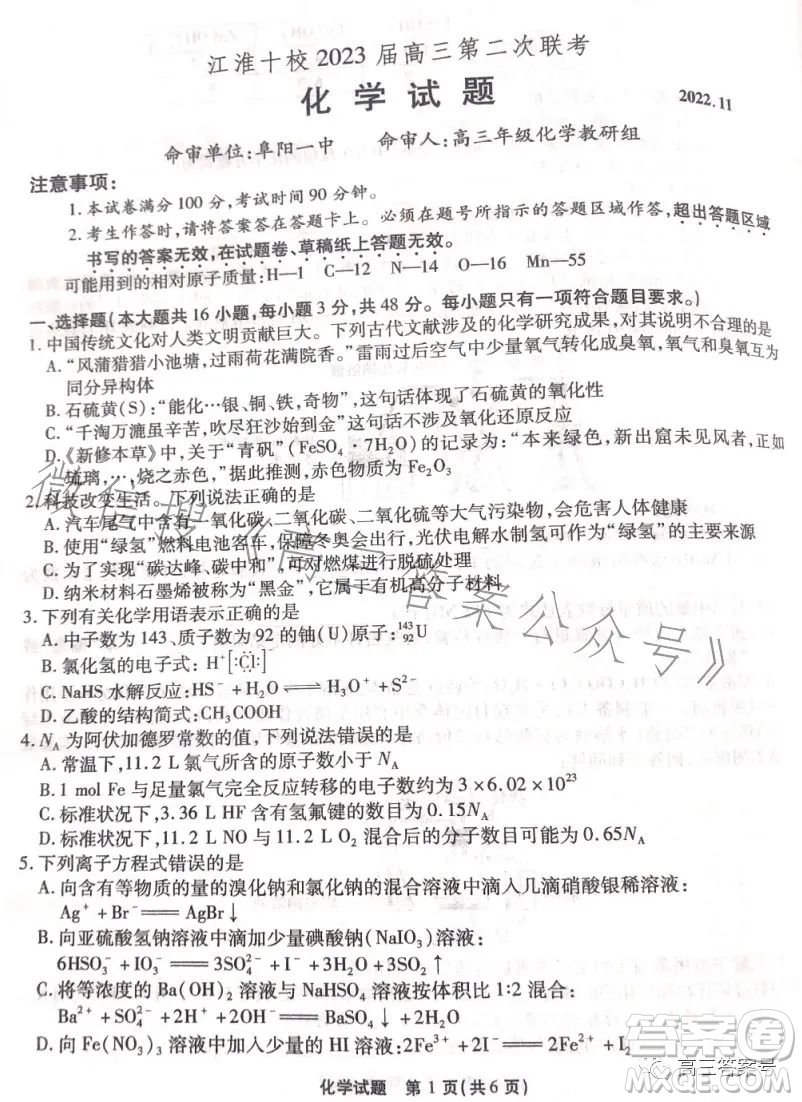 江淮十校2023届高三第二次联考
化学试题
2022.11
命审单位:阜阳一中 命审人:高三年级化学教研组
注意事项:
1.本试卷满分100分,考试时间90分钟。
2.考生作答时,请将答案答在答题卡上。必须在题号所指示的答题区域作答,超出答题区域
书写的答案无效,在试题卷、草稿纸上答题无效。
可能用到的相对原子质量:H—1 C—12 N—14 O—16 Mn—55
一、选择题(本大题共16小题,每小题3分,共48分。每小题只有一项符合题目要求。)
1.中国传统文化对人类文明贡献巨大。下列古代文献涉及的化学研究成果,对其说明不合理的是
A.“风蒲猎猎小池塘,过雨荷花满院香。”雷雨过后空气中少量氧气转化成臭氧,氧气和臭氧互为
同分异构体
B.石硫黄(S):“能化…银、铜、铁,奇物”,这句话体现了石硫黄的氧化性
C.“千淘万漉虽辛苦,吹尽狂沙始到金”这句话不涉及氧化还原反应
D.《新修本草》中,关于“青矾”(FeSO₄·7H₂O)的记录为:“本来绿色,新出窟未见风者,正如
琉璃,……烧之赤色,”据此推测,赤色物质为Fe₂O₃
2.科技改变生活。下列说法正确的是
A.汽车尾气中含有一氧化碳、二氧化碳、二氧化硫等大气污染物,会危害人体健康
B.使用“绿氢”的燃料电池客车,保障冬奥会出行,光伏电解水制氢可作为“绿氢”的主要来源
C.为了实现“碳达峰、碳中和”,可对燃煤进行脱硫处理
D.纳米材料石墨烯被称为“黑金”,它属于有机高分子材料
3.下列有关化学用语表示正确的是
A.中子数为143、质子数为92的铀(U)原子:¹⁴³₉₂U
B.氯化氢的电子式:H⁺[:C̈l̤:]⁻
C.NaHS水解反应:HS⁻+H₂O⇌H₃O⁺+S²⁻
D.乙酸的结构简式:CH₃COOH
4.Nᴀ为阿伏加德罗常数的值,下列说法错误的是
A.常温下,11.2 L氯气所含的原子数小于Nᴀ
B.1 mol Fe与足量氯气完全反应转移的电子数约为3×6.02×10²³
C.标准状况下,3.36 L HF含有氢氟键的数目为0.15Nᴀ
D.标准状况下,11.2 L NO与11.2 L O₂混合后的分子数目可能为0.65Nᴀ
5.下列离子方程式错误的是
A.向含有等物质的量的溴化钠和氯化钠的混合溶液中滴入几滴硝酸银稀溶液:
Ag⁺+Br⁻══AgBr↓
B.向亚硫酸氢钠溶液中滴加少量碘酸钠(NaIO₃)溶液:
6HSO₃⁻+IO₃⁻══3SO₄²⁻+I⁻+3H₂O+3SO₂↑
C.将等浓度的Ba(OH)₂溶液与NaHSO₄溶液按体积比1∶2混合:
Ba²⁺+SO₄²⁻+2H⁺+2OH⁻══BaSO₄↓+2H₂O
D.向Fe(NO₃)₃溶液中加入少量的HI溶液:2Fe³⁺+2I⁻══2Fe²⁺+I₂
化学试题 第1页(共6页)
微信搜《高三答案公众号》
答案卷
高三答案号